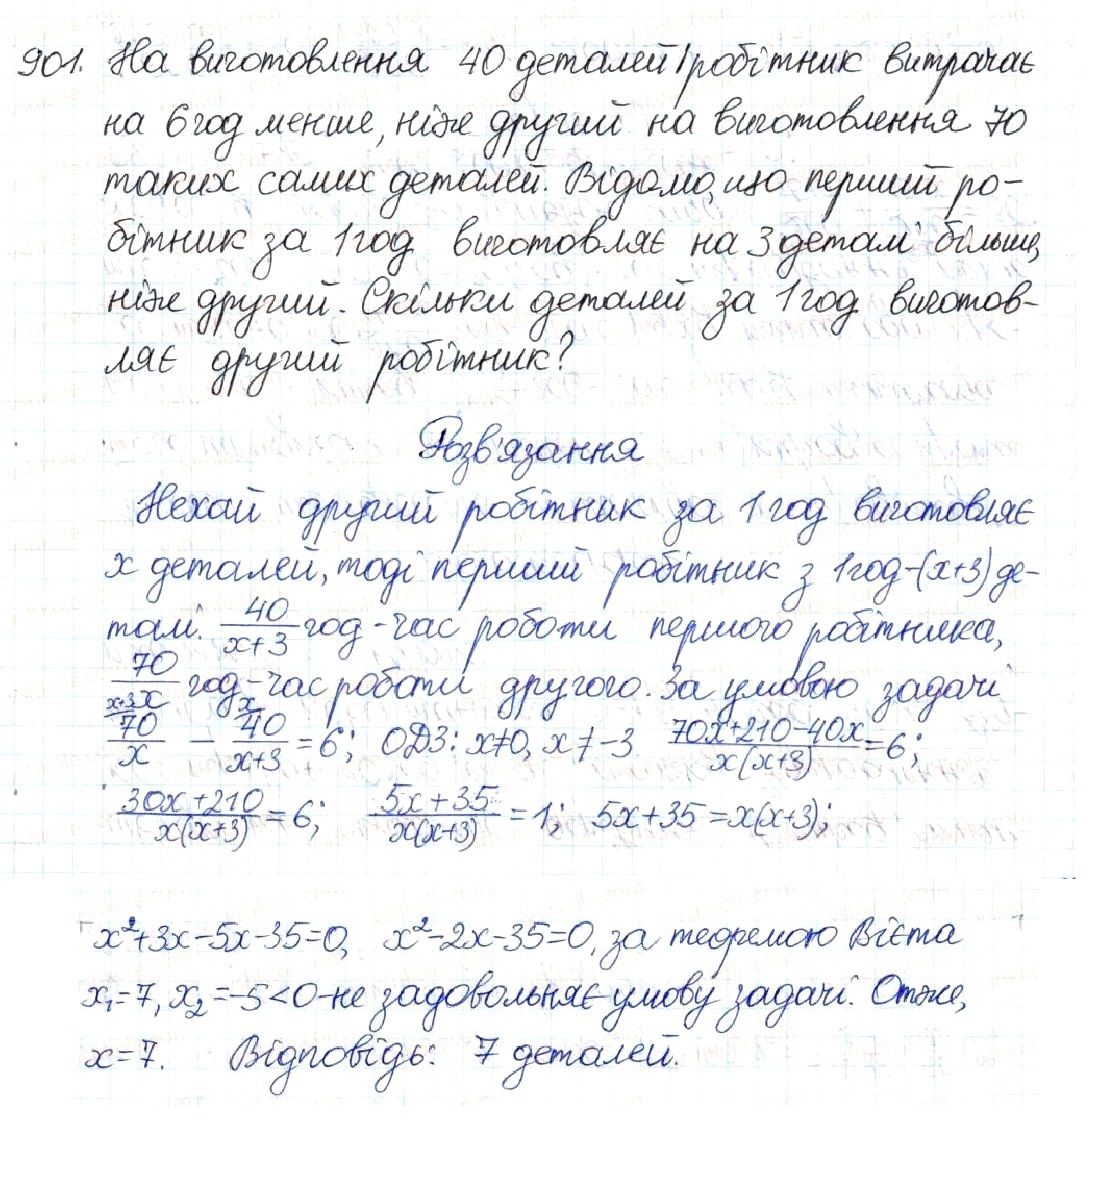 901. На виготовлення 40 деталей 1 робітник витрачає
на 6 год менше, ніж другий на виготовлення 70
таких самих деталей. Відомо, що перший ро-
бітник за 1 год виготовляє на 3 деталі більше,
ніж другий. Скільки деталей за 1 год виготов-
ляє другий робітник?
Розв'язання
Нехай другий робітник за 1 год виготовляє
x деталей, тоді перший робітник з 1 год - (x+3) де-
талі. 40/(x+3) год - час роботи першого робітника,
70/x год - час роботи другого. За умовою задачі
70/x - 40/(x+3) = 6; ОДЗ: x≠0, x≠-3 (70x+210-40x)/(x(x+3)) = 6;
(30x+210)/(x(x+3)) = 6; (5x+35)/(x(x+3)) = 1; 5x+35 = x(x+3);
x²+3x-5x-35=0, x²-2x-35=0, за теоремою Вієта
x₁=7, x₂=-5<0 - не задовольняє умову задачі. Отже,
x=7. Відповідь: 7 деталей.